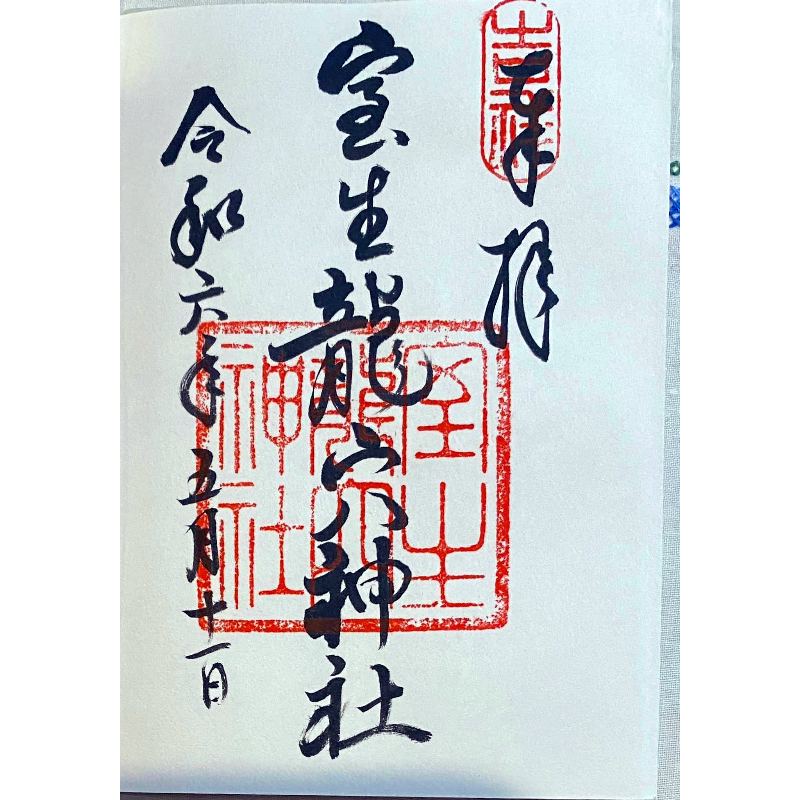 吉祥
奉拝
室生龍穴神社
室生
龍穴
神社
令和六年五月十一日